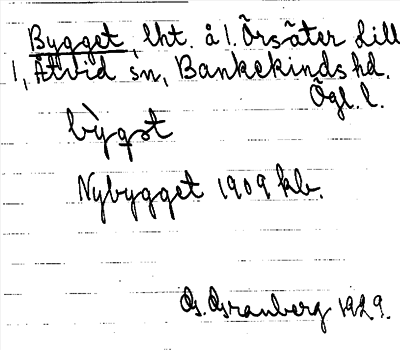 Bygget, lht. å 1. Örsäter Lill
1, Åtvid sn, Bankekinds hd.
Ögl. l.
bỳgst
Nybygget 1909 kb.
G. Granberg 1929.